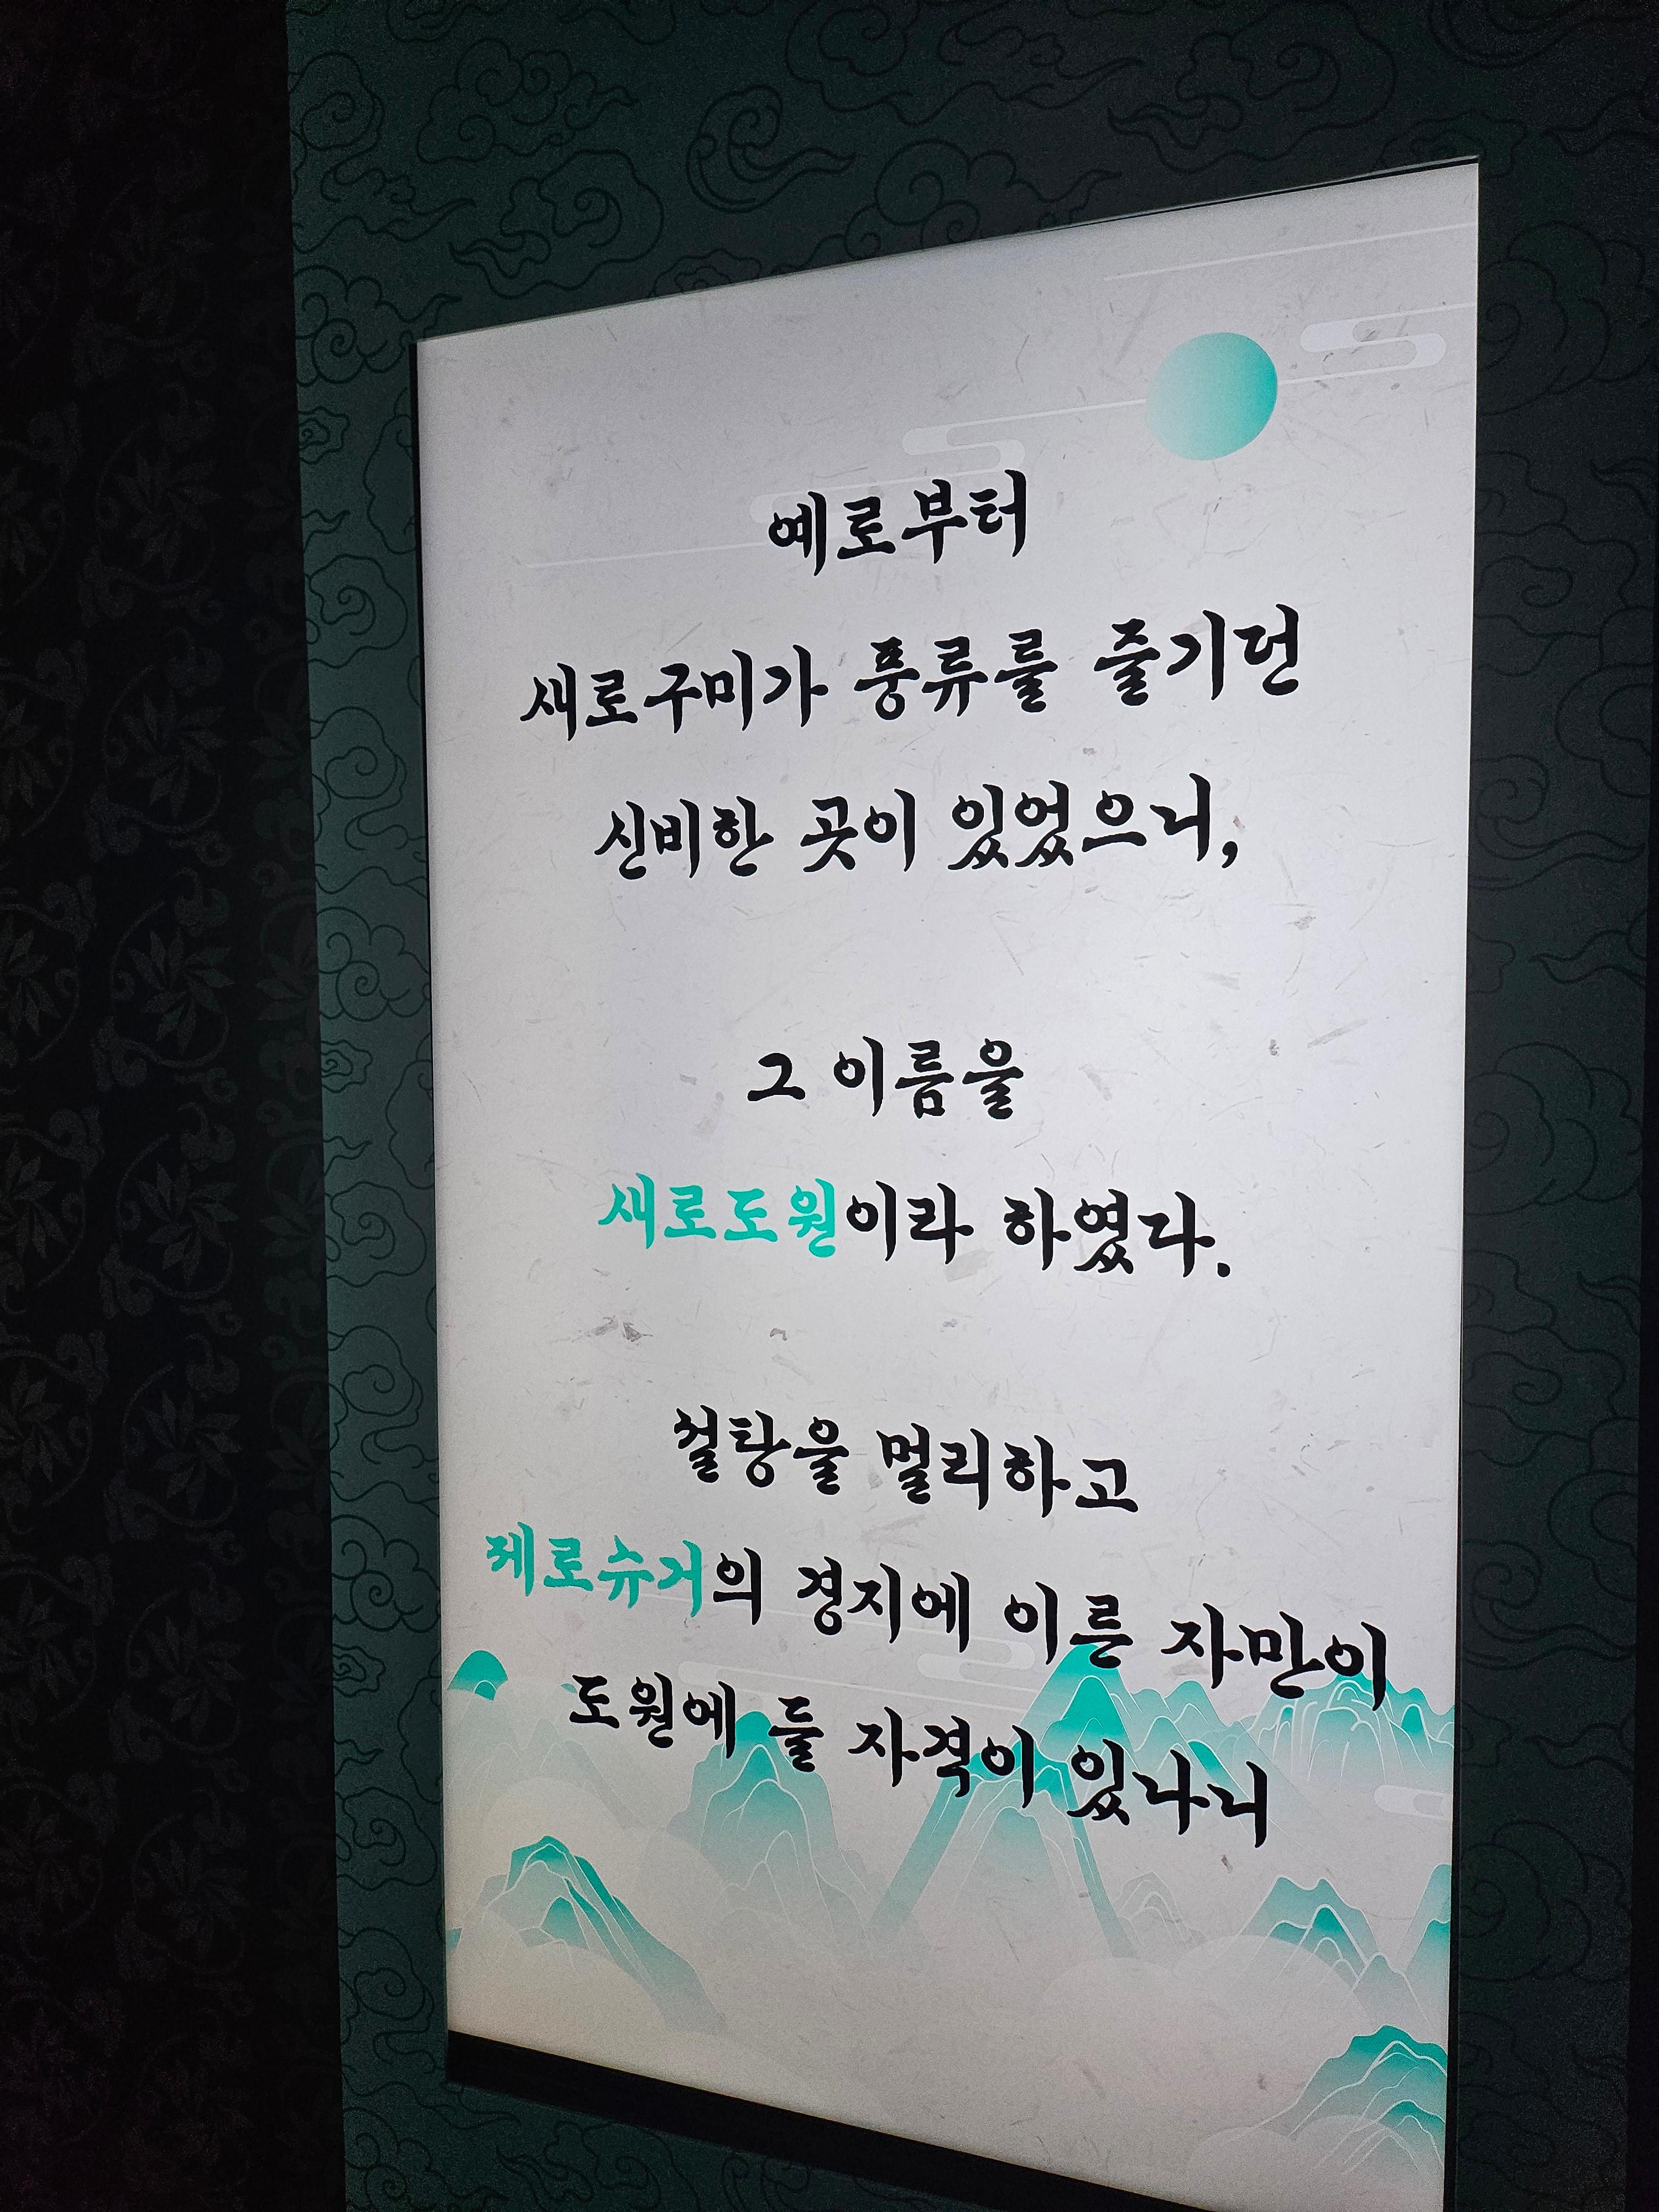 예로부터
새로구미가 풍류를 즐기던
신비한 곳이 있었으니,
그 이름을
새로도원이라 하였다.
설탕을 멀리하고
제로슈거의 경지에 이른 자만이
도원에 들 자격이 있나니